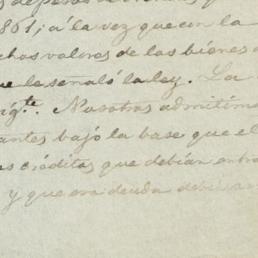 1861; a la vez que con la
chos valores de los bienes
que le señaló la ley. La
sigte. Nosotros admitim
antes bajo la base que el
s créditos que debían entra
y que era deuda